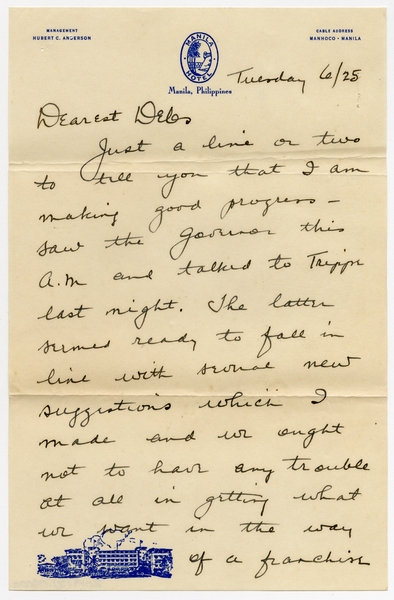 MANAGEMENT
HUBERT C. ANDERSON
MANILA
HOTEL
Manila, Philippines
CABLE ADDRESS
MANHOCO - MANILA
Tuesday 6/25
Dearest Debs
Just a line or two
to tell you that I am
making good progress -
saw the Governor this
A.M and talked to Trippe
last night. The latter
seemed ready to fall in
line with several new
suggestions which I
made and we ought
not to have any trouble
at all in getting what
we want in the way
of a franchise